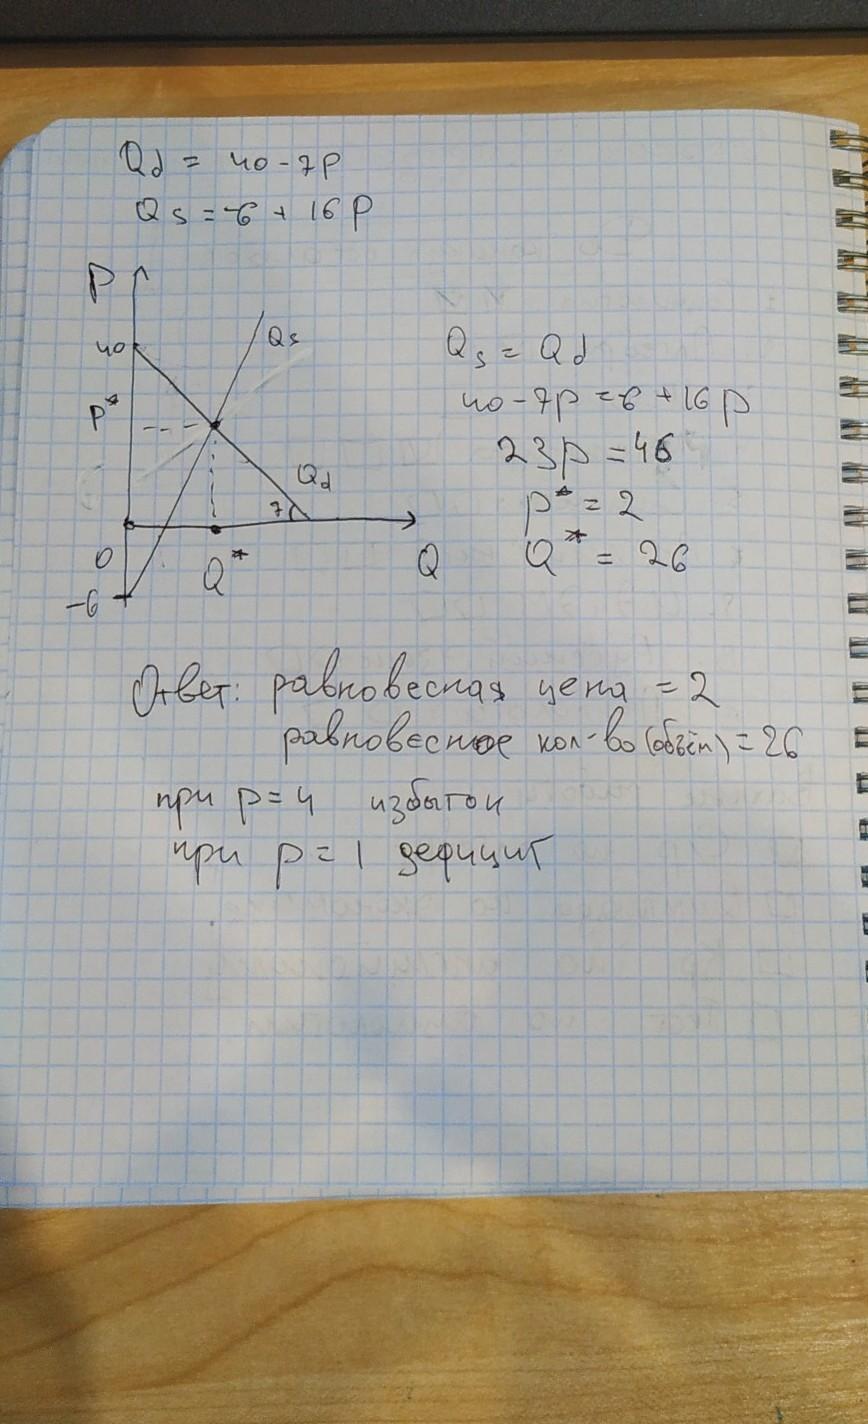 Qd = 40 - 7P
Qs = -6 + 16P
P
40
Qs
P*
Qd
7
0
Q*
Q
-6
Qs = Qd
40 - 7p = -6 + 16p
23p = 46
p* = 2
Q* = 26
Ответ: равновесная цена = 2
равновесное кол-во (объём) = 26
при p = 4 избыток
при p = 1 дефицит